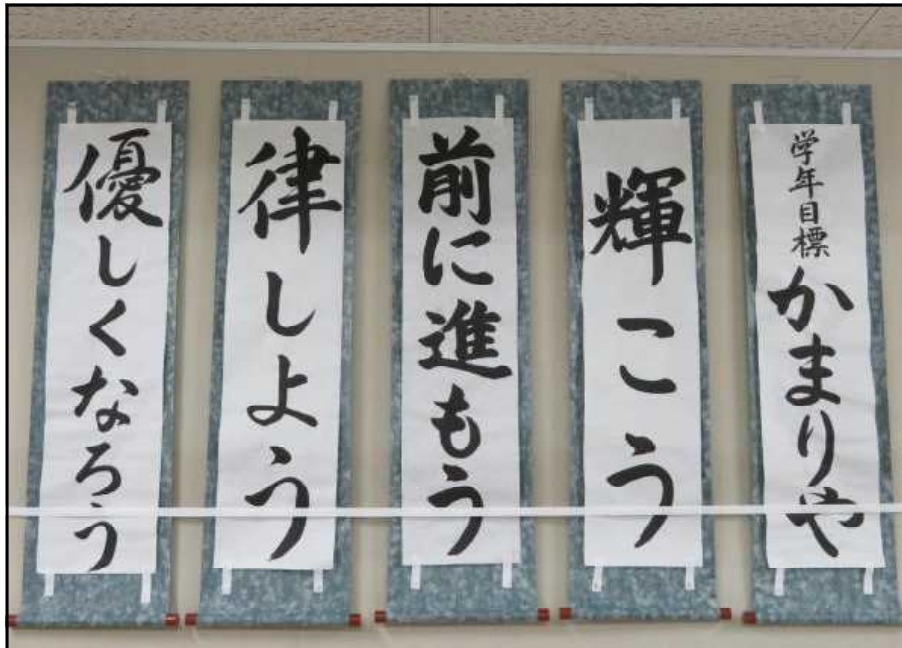 学年目標
かまりや
輝こう
前に進もう
律しよう
優しくなろう